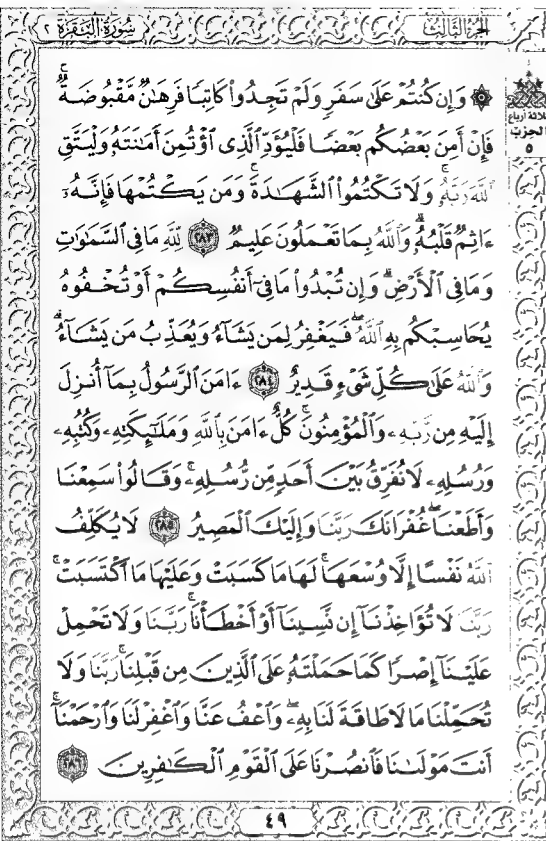 سُورَةُ البَقَرَةِ ٢
الجُزْءُ الثَّالِثُ
ثلاثة أرباع
الحزب
٥
۞ وَإِن كُنتُمْ عَلَىٰ سَفَرٍ وَلَمْ تَجِدُوا۟ كَاتِبًا فَرِهَـٰنٌ مَّقْبُوضَةٌ ۖ
فَإِنْ أَمِنَ بَعْضُكُم بَعْضًا فَلْيُؤَدِّ ٱلَّذِى ٱؤْتُمِنَ أَمَـٰنَتَهُۥ وَلْيَتَّقِ
ٱللَّهَ رَبَّهُۥ ۗ وَلَا تَكْتُمُوا۟ ٱلشَّهَـٰدَةَ ۚ وَمَن يَكْتُمْهَا فَإِنَّهُۥٓ
ءَاثِمٌ قَلْبُهُۥ ۗ وَٱللَّهُ بِمَا تَعْمَلُونَ عَلِيمٌ ٢٨٣ لِّلَّهِ مَا فِى ٱلسَّمَـٰوَٰتِ
وَمَا فِى ٱلْأَرْضِ ۗ وَإِن تُبْدُوا۟ مَا فِىٓ أَنفُسِكُمْ أَوْ تُخْفُوهُ
يُحَاسِبْكُم بِهِ ٱللَّهُ ۖ فَيَغْفِرُ لِمَن يَشَآءُ وَيُعَذِّبُ مَن يَشَآءُ ۗ
وَٱللَّهُ عَلَىٰ كُلِّ شَىْءٍ قَدِيرٌ ٢٨٤ ءَامَنَ ٱلرَّسُولُ بِمَآ أُنزِلَ
إِلَيْهِ مِن رَّبِّهِۦ وَٱلْمُؤْمِنُونَ ۚ كُلٌّ ءَامَنَ بِٱللَّهِ وَمَلَـٰٓئِكَتِهِۦ وَكُتُبِهِۦ
وَرُسُلِهِۦ لَا نُفَرِّقُ بَيْنَ أَحَدٍ مِّن رُّسُلِهِۦ ۚ وَقَالُوا۟ سَمِعْنَا
وَأَطَعْنَا ۖ غُفْرَانَكَ رَبَّنَا وَإِلَيْكَ ٱلْمَصِيرُ ٢٨٥ لَا يُكَلِّفُ
ٱللَّهُ نَفْسًا إِلَّا وُسْعَهَا ۚ لَهَا مَا كَسَبَتْ وَعَلَيْهَا مَا ٱكْتَسَبَتْ ۗ
رَبَّنَا لَا تُؤَاخِذْنَآ إِن نَّسِينَآ أَوْ أَخْطَأْنَا ۚ رَبَّنَا وَلَا تَحْمِلْ
عَلَيْنَآ إِصْرًا كَمَا حَمَلْتَهُۥ عَلَى ٱلَّذِينَ مِن قَبْلِنَا ۚ رَبَّنَا وَلَا
تُحَمِّلْنَا مَا لَا طَاقَةَ لَنَا بِهِۦ ۖ وَٱعْفُ عَنَّا وَٱغْفِرْ لَنَا وَٱرْحَمْنَآ ۚ
أَنتَ مَوْلَىٰنَا فَٱنصُرْنَا عَلَى ٱلْقَوْمِ ٱلْكَـٰفِرِينَ ٢٨٦
٤٩